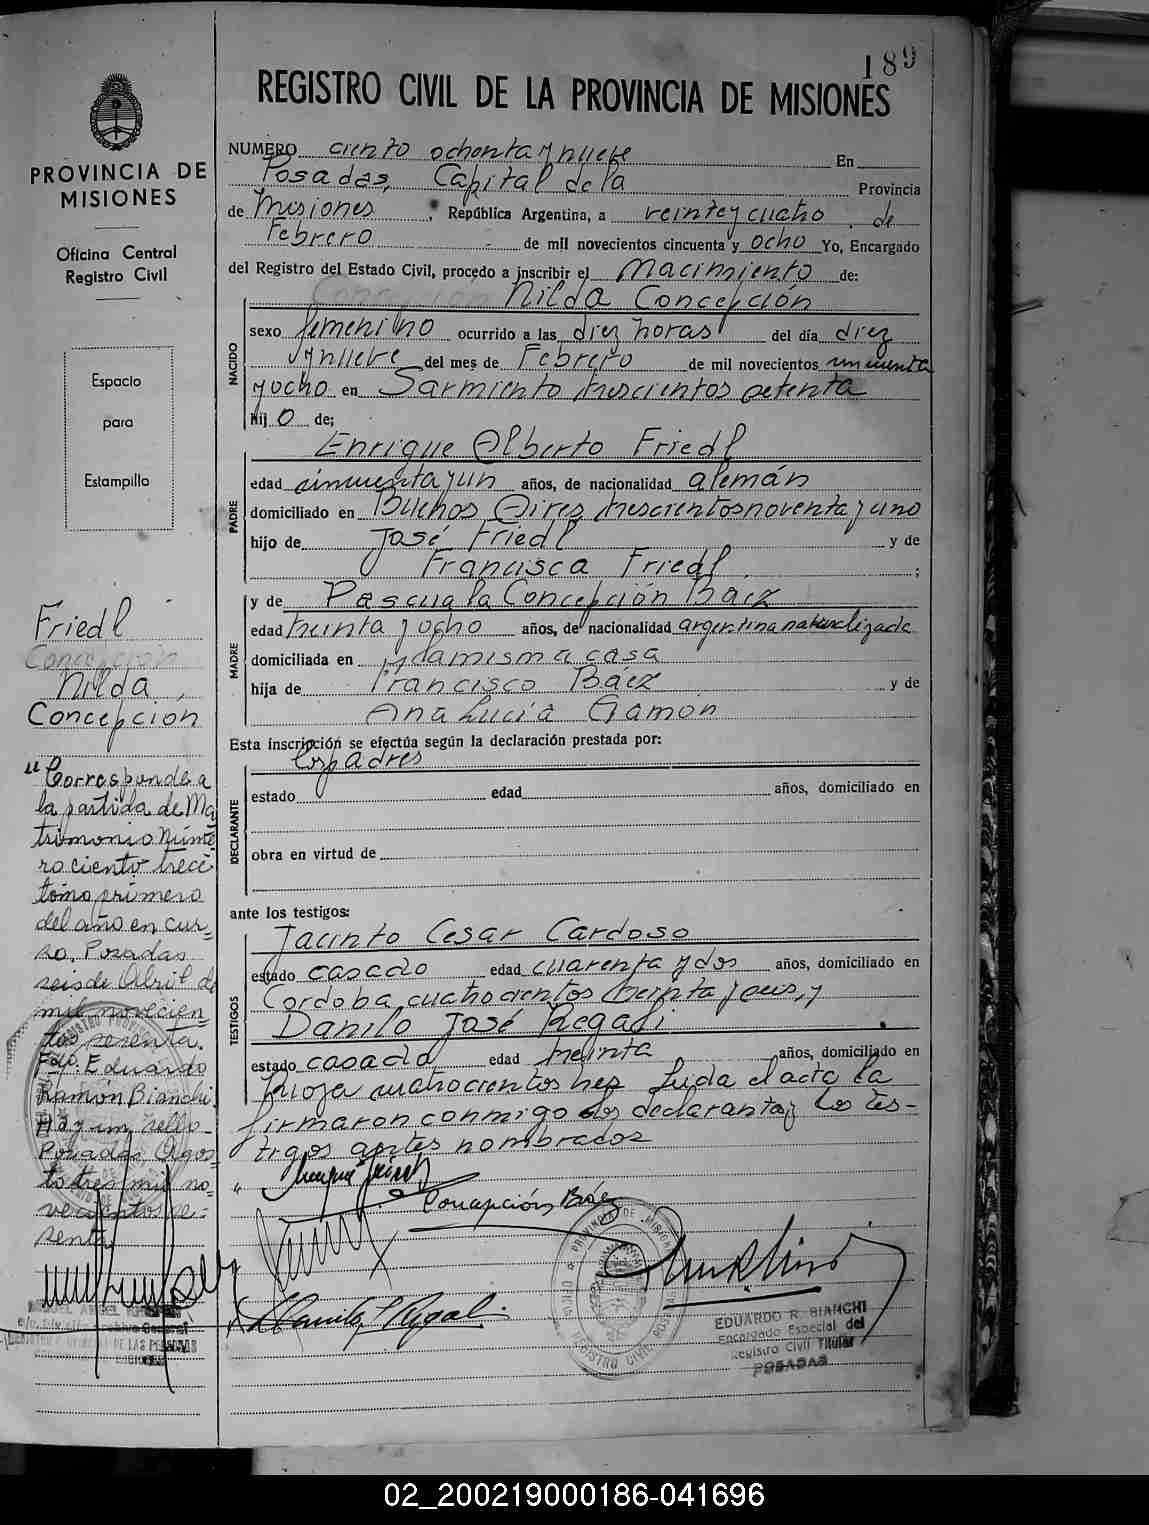 189
REGISTRO CIVIL DE LA PROVINCIA DE MISIONES
PROVINCIA DE
MISIONES
Oficina Central
Registro Civil
Espacio
para
Estampilla
NUMERO ciento ochenta y nueve En
Posadas, Capital de la Provincia
de Misiones, República Argentina, a veintey cuatro de
Febrero de mil novecientos cincuenta y ocho Yo, Encargado
del Registro del Estado Civil, procedo a inscribir el Nacimiento de:
Concepción Nilda Concepción
NACIDO
sexo femenino ocurrido a las diez horas del día diez
y nueve del mes de Febrero de mil novecientos cincuenta
y ocho en Sarmiento trescientos setenta
hij o de;
Enrique Alberto Friedl
PADRE
edad cincuenta y un años, de nacionalidad alemán
domiciliado en Buenos Aires trescientos noventa y uno
hijo de José Friedl y de
Francisca Friedl ;
y de Pascuala Concepción Báez
MADRE
edad treinta y ocho años, de nacionalidad argentina naturalizada
domiciliada en la misma casa
hija de Francisco Báez y de
Ana Lucía Gamon
Esta inscripción se efectúa según la declaración prestada por:
los padres
DECLARANTE
estado edad años, domiciliado en
obra en virtud de
ante los testigos:
Jacinto Cesar Cardoso
TESTIGOS
estado casado edad cuarenta y dos años, domiciliado en
Cordoba cuatrocientos treinta y seis, y
Danilo José Regali
estado casado edad treinta años, domiciliado en
Rioja cuatrocientos tres Leida el acta la
firmaron conmigo los declarantes y los tes-
tigos antes nombrados
Concepción Báez
EDUARDO R. BIANCHI
Encargado Especial del
Registro Civil Titular
POSADAS
Friedl
Concepción
Nilda,
Concepción
"Corresponde a
la partida de Ma
trimonio Núme
ro ciento trece
tomo primero
del año en cur-
so. Posadas
seis de Abril de
mil novecien-
tos sesenta.
Fdo: Eduardo
Ramón Bianchi
Hay un sello
Posadas Agos-
to tres mil no-
vecientos se-
senta
02_200219000186-041696